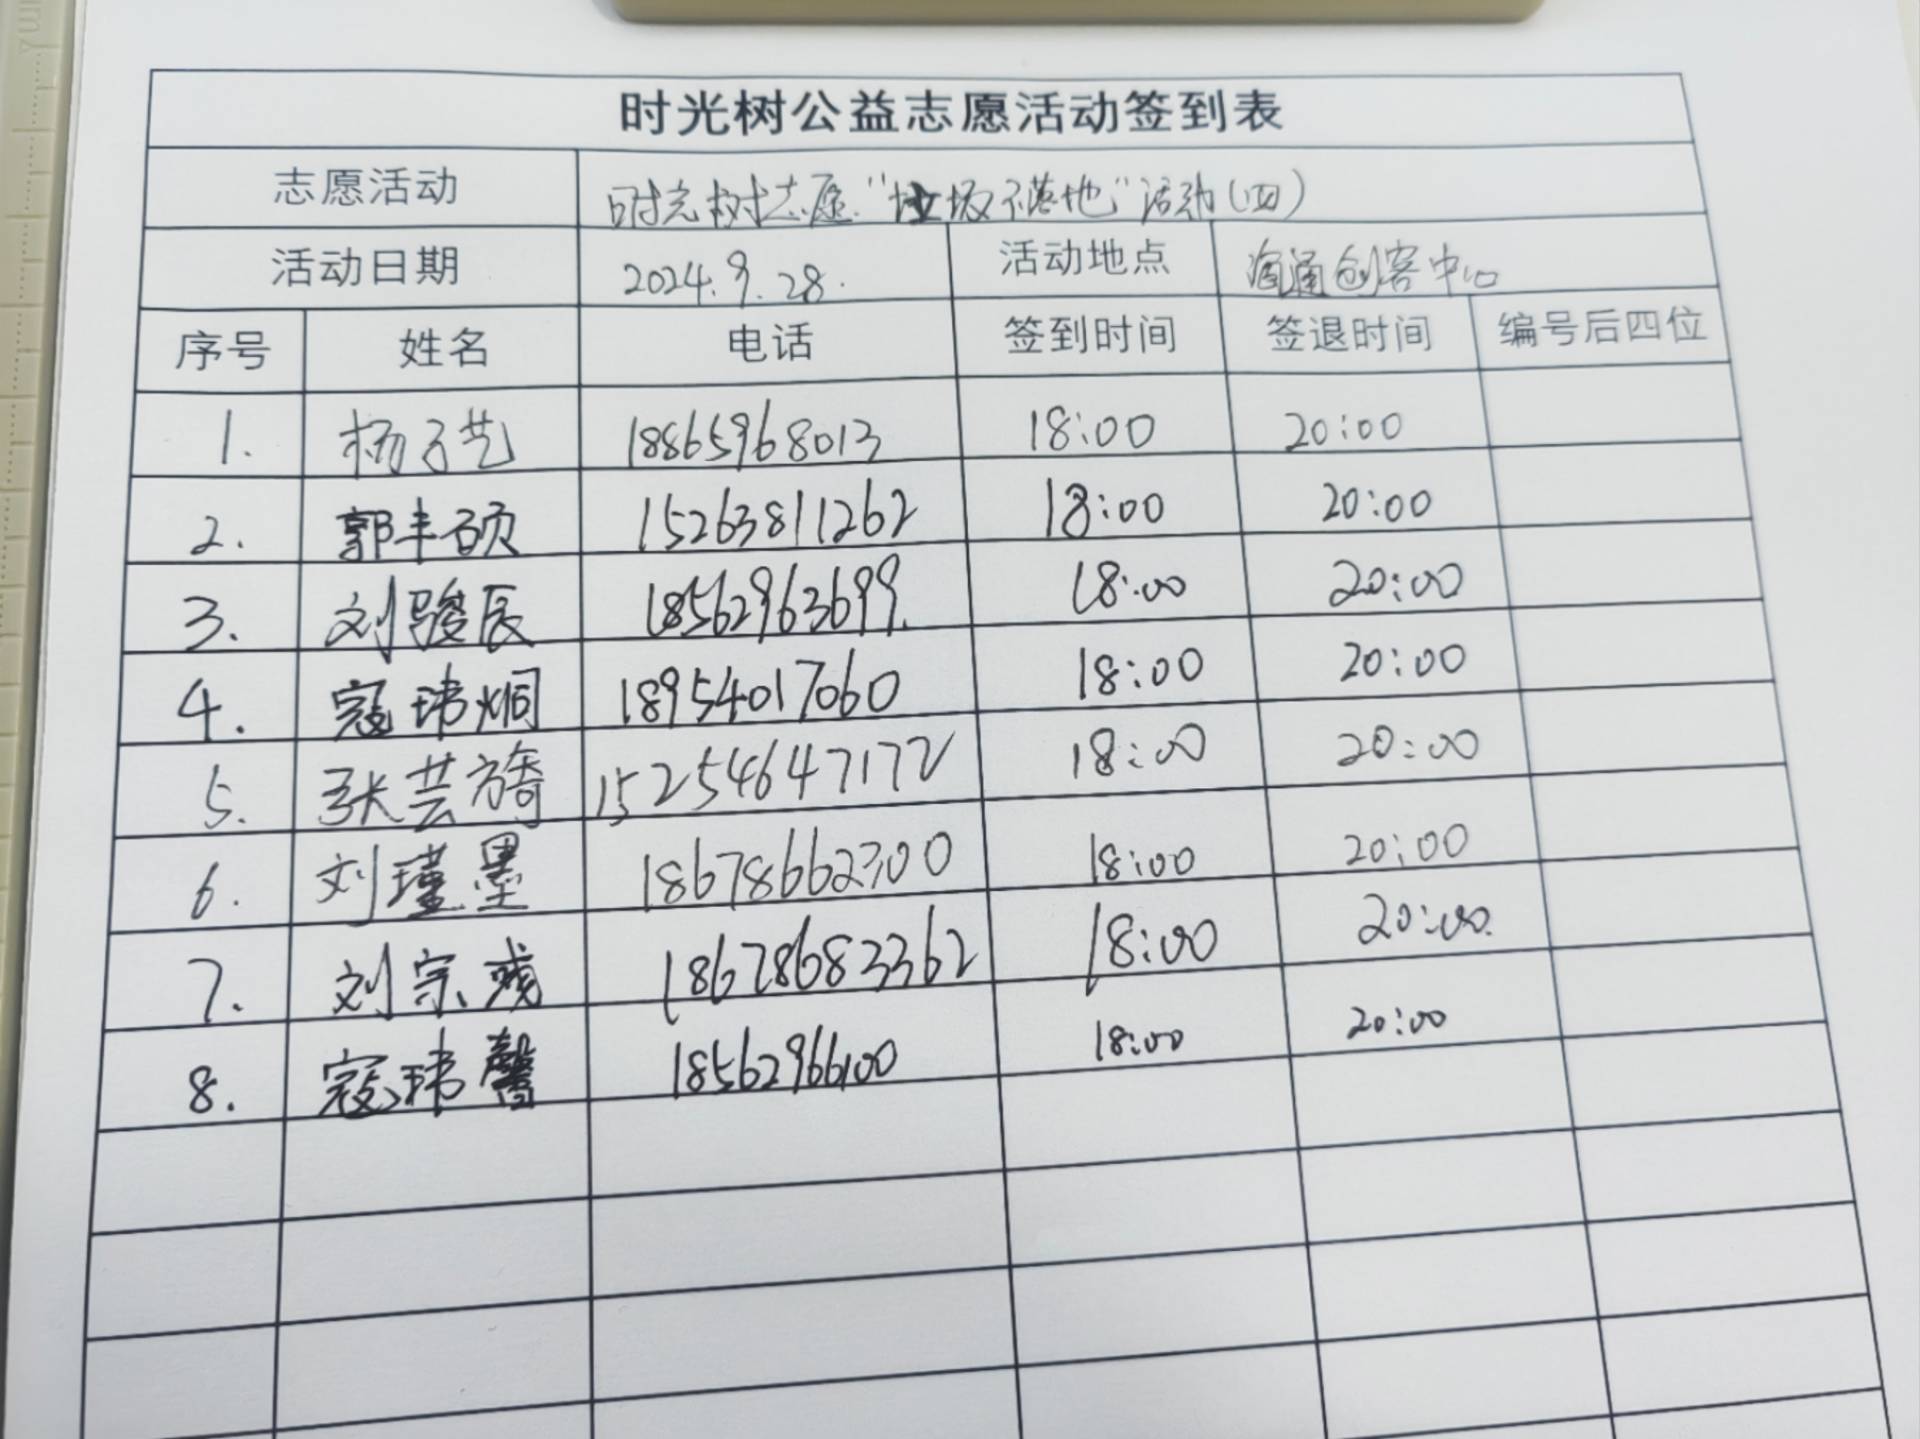 时光树公益志愿活动签到表
志愿活动 时光树志愿"垃圾不落地"活动(四)
活动日期 2024.9.28. 活动地点 海通创客中心
序号 姓名 电话 签到时间 签退时间 编号后四位
1. 杨子艺 18865968013 18:00 20:00
2. 郭丰硕 15263811262 18:00 20:00
3. 刘骏辰 18562963699. 18:00 20:00
4. 寇玮炯 18954017060 18:00 20:00
5. 张芸旖 15254647172 18:00 20:00
6. 刘瑾墨 18678662300 18:00 20:00
7. 刘宗彧 18678683362 18:00 20:00.
8. 寇玮馨 18562966100 18:00 20:00